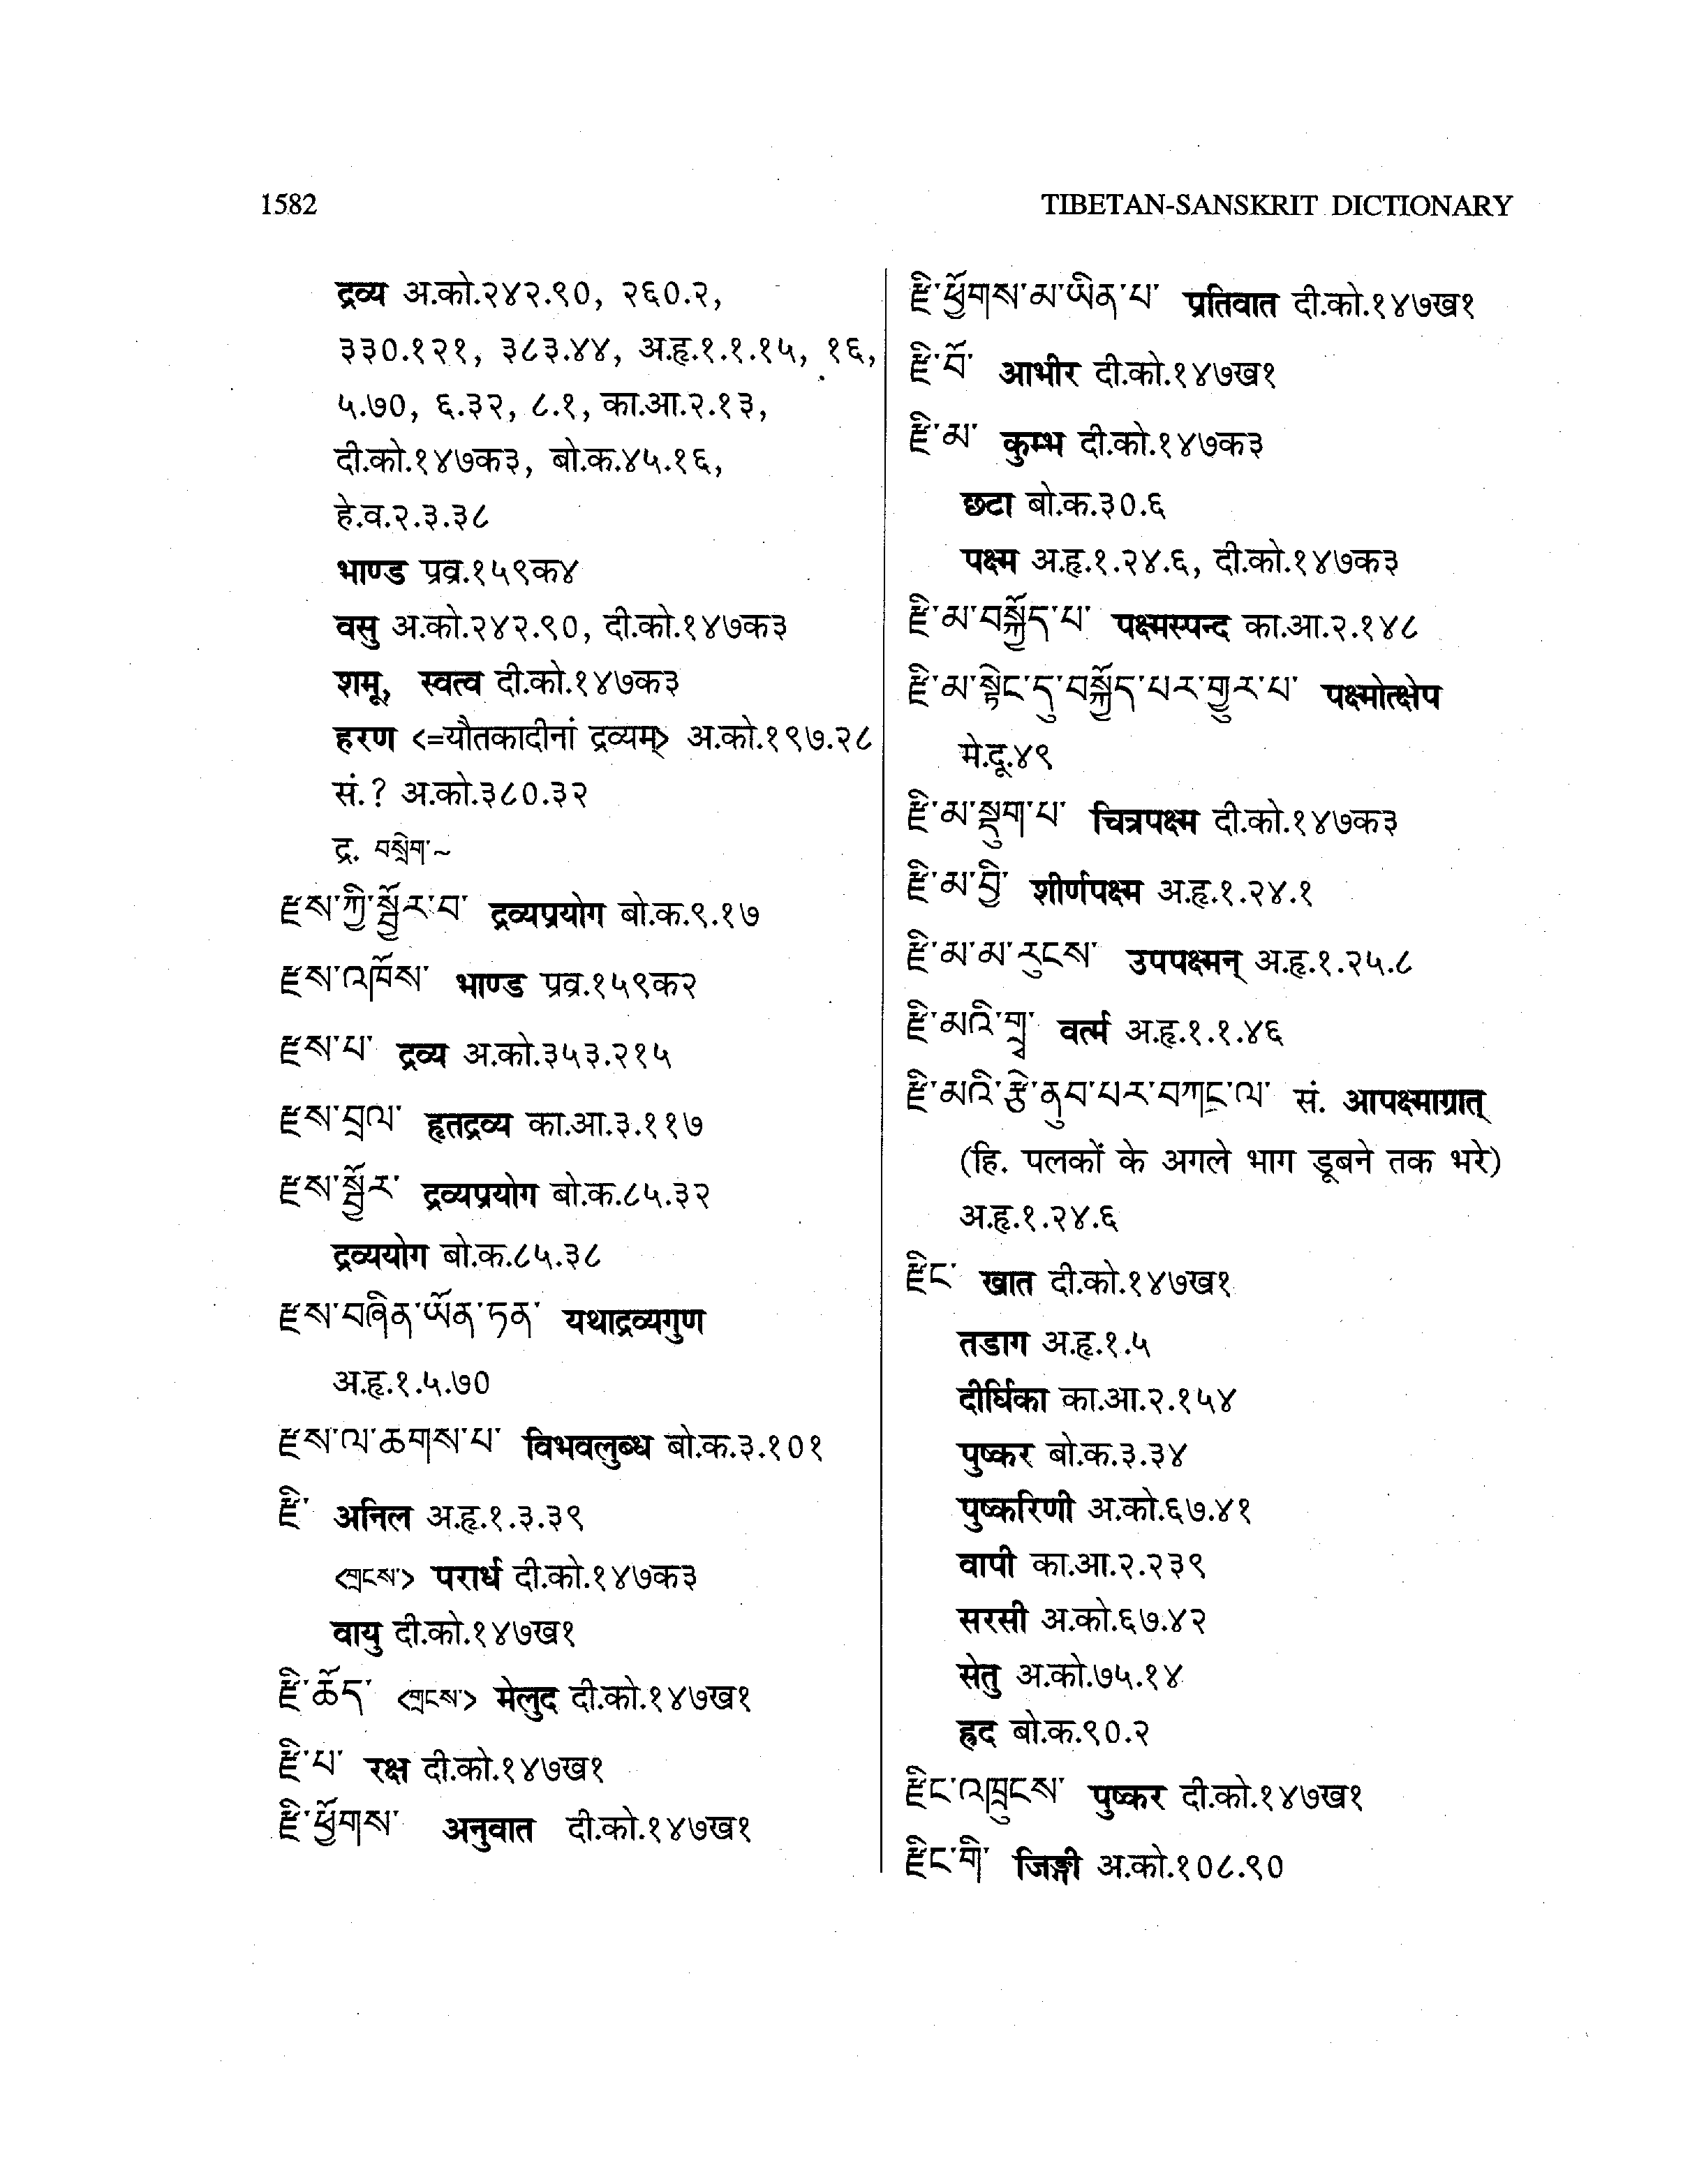 1582
TIBETAN-SANSKRIT DICTIONARY
द्रव्य अ.को.२४२.९०, २६०.२,
३३०.१२१, ३८३.४४, अ.हृ.१.१.१५, १६,
५.७०, ६.३२, ८.१, का.आ.२.१३,
दी.को.१४७क३, बो.क.४५.१६,
हे.व.२.३.३८
भाण्ड प्रव्र.१५९क४
वसु अ.को.२४२.९०, दी.को.१४७क३
शमू, स्वत्व दी.को.१४७क३
हरण <=यौतकादीनां द्रव्यम्> अ.को.१९७.२८
सं.? अ.को.३८०.३२
द्र. བསྲེག་~
རྫས་ཀྱི་སྦྱོར་བ་ द्रव्यप्रयोग बो.क.९.१७
རྫས་འཁོས་ भाण्ड प्रव्र.१५९क२
རྫས་པ་ द्रव्य अ.को.३५३.२१५
རྫས་བྲལ་ हृतद्रव्य का.आ.३.११७
རྫས་སྦྱོར་ द्रव्यप्रयोग बो.क.८५.३२
द्रव्ययोग बो.क.८५.३८
རྫས་བཞིན་ཡོན་ཏན་ यथाद्रव्यगुण
अ.हृ.१.५.७०
རྫས་ལ་ཆགས་པ་ विभवलुब्ध बो.क.३.१०१
རྫི་ अनिल अ.हृ.१.३.३९
<གྲངས་> परार्ध दी.को.१४७क३
वायु दी.को.१४७ख१
རྫི་ཆོད་ <གྲངས་> मेलुद दी.को.१४७ख१
རྫི་པ་ रक्ष दी.को.१४७ख१
རྫི་ཕྱོགས་ अनुवात दी.को.१४७ख१
རྫི་ཕྱོགས་མ་ཡིན་པ་ प्रतिवात दी.को.१४७ख१
རྫི་བོ་ आभीर दी.को.१४७ख१
རྫི་མ་ कुम्भ दी.को.१४७क३
छटा बो.क.३०.६
पक्ष्म अ.हृ.१.२४.६, दी.को.१४७क३
རྫི་མ་བསྐྱོད་པ་ पक्ष्मस्पन्द का.आ.२.१४८
རྫི་མ་སྟེང་དུ་བསྐྱོད་པར་གྱུར་པ་ पक्ष्मोत्क्षेप
मे.दू.४९
རྫི་མ་སྡུག་པ་ चित्रपक्ष्म दी.को.१४७क३
རྫི་མ་བྱི་ शीर्णपक्ष्म अ.हृ.१.२४.१
རྫི་མ་མ་རུངས་ उपपक्ष्मन् अ.हृ.१.२५.८
རྫི་མའི་གྲྭ་ वर्त्म अ.हृ.१.१.४६
རྫི་མའི་རྩེ་ནུབ་པར་བཀང་ལ་ सं. आपक्ष्माग्रात्
(हि. पलकों के अगले भाग डूबने तक भरे)
अ.हृ.१.२४.६
རྫིང་ खात दी.को.१४७ख१
तडाग अ.हृ.१.५
दीर्घिका का.आ.२.१५४
पुष्कर बो.क.३.३४
पुष्करिणी अ.को.६७.४१
वापी का.आ.२.२३९
सरसी अ.को.६७.४२
सेतु अ.को.७५.१४
ह्रद बो.क.९०.२
རྫིང་འཁྲུངས་ पुष्कर दी.को.१४७ख१
རྫིང་གི་ जिङ्गी अ.को.१०८.९०